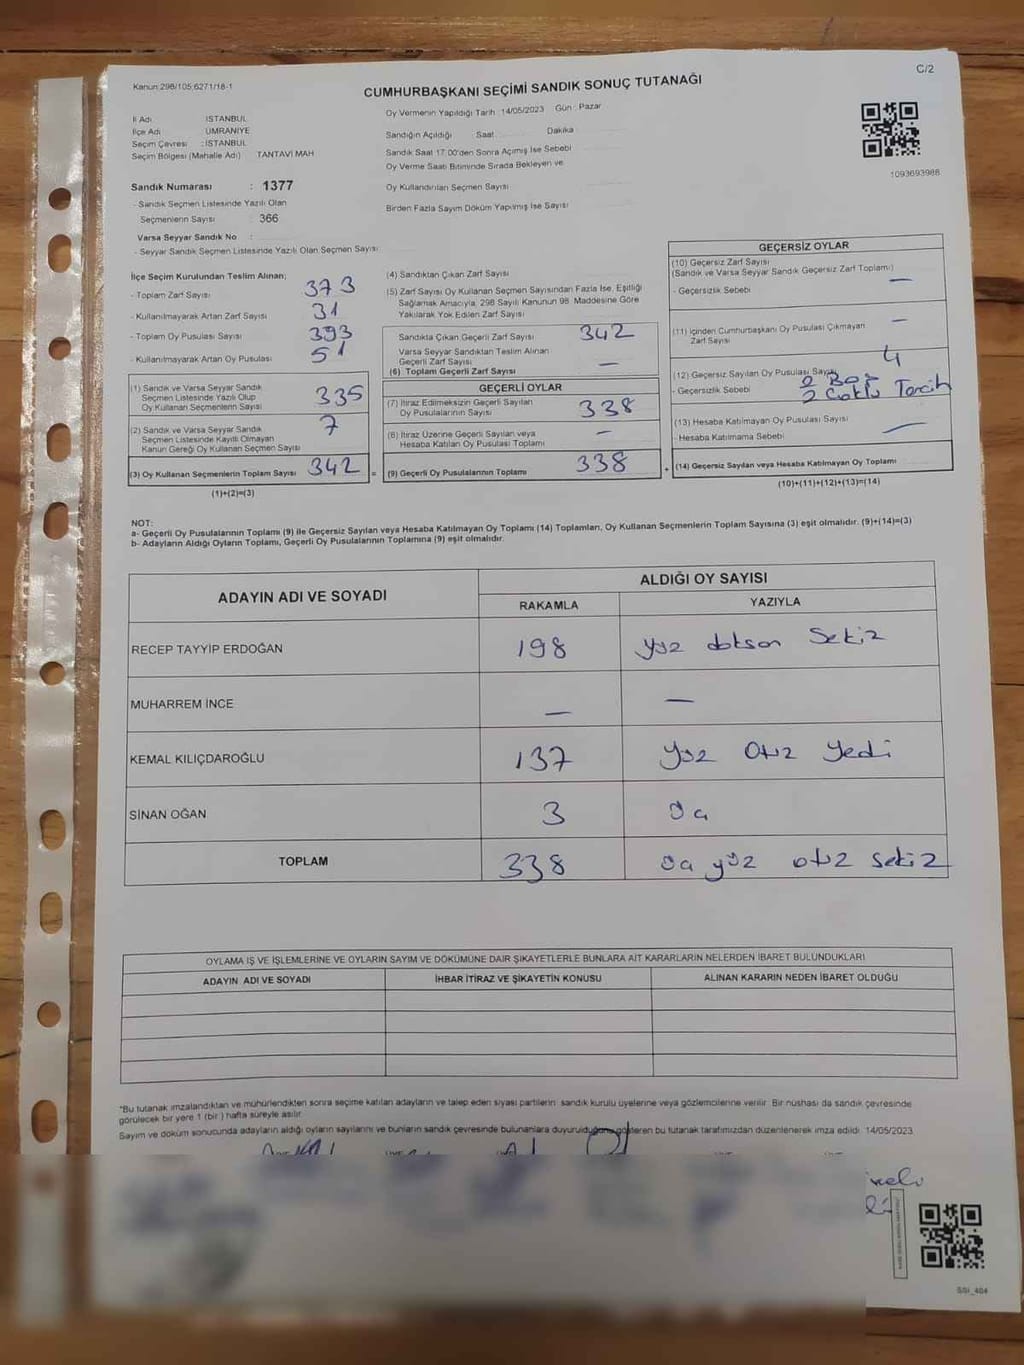 C/2
Kanun:298/105;6271/18-1
CUMHURBAŞKANI SEÇİMİ SANDIK SONUÇ TUTANAĞI
İl Adı : İSTANBUL
İlçe Adı : ÜMRANİYE
Seçim Çevresi : İSTANBUL
Seçim Bölgesi (Mahalle Adı) TANTAVİ MAH
Oy Vermenin Yapıldığı Tarih : 14/05/2023 Gün : Pazar
Sandığın Açıldığı Saat Dakika
Sandık Saat 17:00'den Sonra Açımış İse Sebebi
Oy Verme Saati Bitiminde Sırada Bekleyen ve
Oy Kullandırılan Seçmen Sayısı
Birden Fazla Sayım Döküm Yapılmış İse Sayısı
1093693988
Sandık Numarası : 1377
- Sandık Seçmen Listesinde Yazılı Olan
Seçmenlerin Sayısı : 366
Varsa Seyyar Sandık No :
- Seyyar Sandık Seçmen Listesinde Yazılı Olan Seçmen Sayısı
İlçe Seçim Kurulundan Teslim Alınan;
- Toplam Zarf Sayısı 373
- Kullanılmayarak Artan Zarf Sayısı 31
- Toplam Oy Pusulası Sayısı 393
- Kullanılmayarak Artan Oy Pusulası 51
(1) Sandık ve Varsa Seyyar Sandık
Seçmen Listesinde Yazılı Olup
Oy Kullanan Seçmenlerin Sayısı 335
(2) Sandık ve Varsa Seyyar Sandık
Seçmen Listesinde Kayıtlı Olmayan
Kanun Gereği Oy Kullanan Seçmen Sayısı 7
(3) Oy Kullanan Seçmenlerin Toplam Sayısı 342 =
(1)+(2)=(3)
(4) Sandıktan Çıkan Zarf Sayısı
(5) Zarf Sayısı Oy Kullanan Seçmen Sayısından Fazla İse, Eşitliği
Sağlamak Amacıyla, 298 Sayılı Kanunun 98. Maddesine Göre
Yakılarak Yok Edilen Zarf Sayısı
Sandıkta Çıkan Geçerli Zarf Sayısı 342
Varsa Seyyar Sandıktan Teslim Alınan
Geçerli Zarf Sayısı —
(6) Toplam Geçerli Zarf Sayısı
GEÇERLİ OYLAR
(7) İtiraz Edilmeksizin Geçerli Sayılan
Oy Pusulalarının Sayısı 338
(8) İtiraz Üzerine Geçerli Sayılan veya
Hesaba Katılan Oy Pusulası Toplamı —
(9) Geçerli Oy Pusulalarının Toplamı 338 +
GEÇERSİZ OYLAR
(10) Geçersiz Zarf Sayısı
(Sandık ve Varsa Seyyar Sandık Geçersiz Zarf Toplamı)
- Geçersizlik Sebebi —
(11) İçinden Cumhurbaşkanı Oy Pusulası Çıkmayan
Zarf Sayısı —
(12) Geçersiz Sayılan Oy Pusulası Sayısı 4
- Geçersizlik Sebebi 2 Boş
2 Çoklu Tercih
(13) Hesaba Katılmayan Oy Pusulası Sayısı
- Hesaba Katılmama Sebebi —
(14) Geçersiz Sayılan veya Hesaba Katılmayan Oy Toplamı
(10)+(11)+(12)+(13)=(14)
NOT:
a- Geçerli Oy Pusulalarının Toplamı (9) ile Geçersiz Sayılan veya Hesaba Katılmayan Oy Toplamı (14) Toplamları, Oy Kullanan Seçmenlerin Toplam Sayısına (3) eşit olmalıdır. (9)+(14)=(3)
b- Adayların Aldığı Oyların Toplamı, Geçerli Oy Pusulalarının Toplamına (9) eşit olmalıdır.
ADAYIN ADI VE SOYADI ALDIĞI OY SAYISI
RAKAMLA YAZIYLA
RECEP TAYYİP ERDOĞAN 198 yüz doksan sekiz
MUHARREM İNCE — —
KEMAL KILIÇDAROĞLU 137 yüz otuz yedi
SİNAN OĞAN 3 üç
TOPLAM 338 üç yüz otuz sekiz
OYLAMA İŞ VE İŞLEMLERİNE VE OYLARIN SAYIM VE DÖKÜMÜNE DAİR ŞİKAYETLERLE BUNLARA AİT KARARLARIN NELERDEN İBARET BULUNDUKLARI
ADAYIN ADI VE SOYADI İHBAR İTİRAZ VE ŞİKAYETİN KONUSU ALINAN KARARIN NEDEN İBARET OLDUĞU
*Bu tutanak imzalandıktan ve mühürlendikten sonra seçime katılan adayların ve talep eden siyasi partilerin sandık kurulu üyelerine veya gözlemcilerine verilir. Bir nüshası da sandık çevresinde
görülecek bir yere 1 (bir) hafta süreyle asılır.
Sayım ve döküm sonucunda adayların aldığı oyların sayılarını ve bunların sandık çevresinde bulunanlara duyurulduğunu gösteren bu tutanak tarafımızdan düzenlenerek imza edildi. 14/05/2023